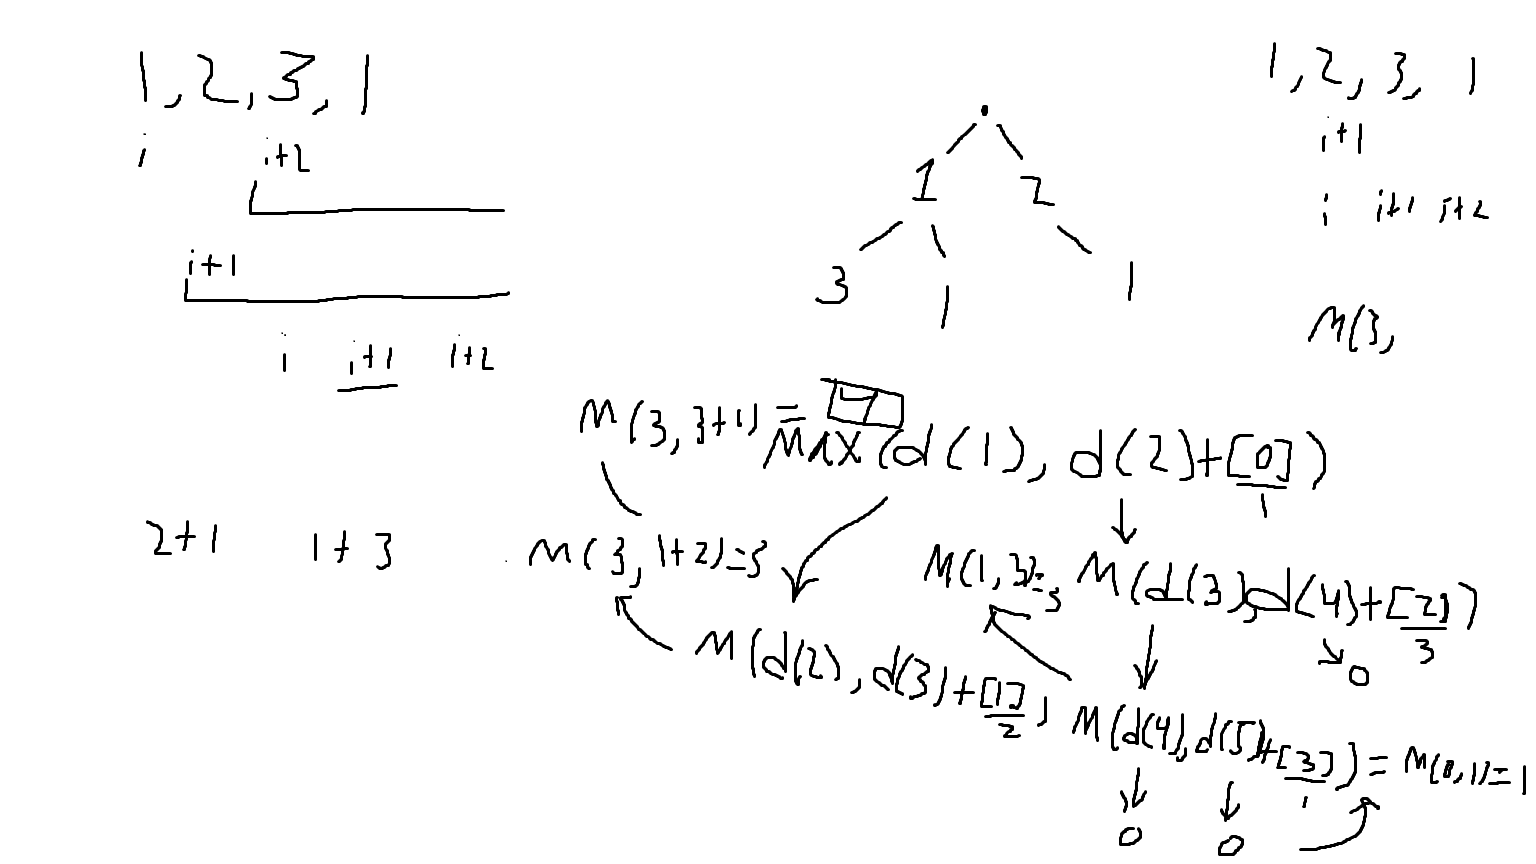 1,2,3,1
1,2,3,1
i i+2
i+1
i i+1 i+2
i+1
1 2
3 1 1
i i+1 i+2
M(3,
M(3,3+1) =
4
MAX(d(1), d(2)+[0])
1
2+1 1+3
M(3,1+2)=3
M(1,3)=3
M(d(3),d(4)+[2])
3
0
M(d(2),d(3)+[1])
2
M(d(4),d(5)+[3]) = M(0,1)=1
1
0 0